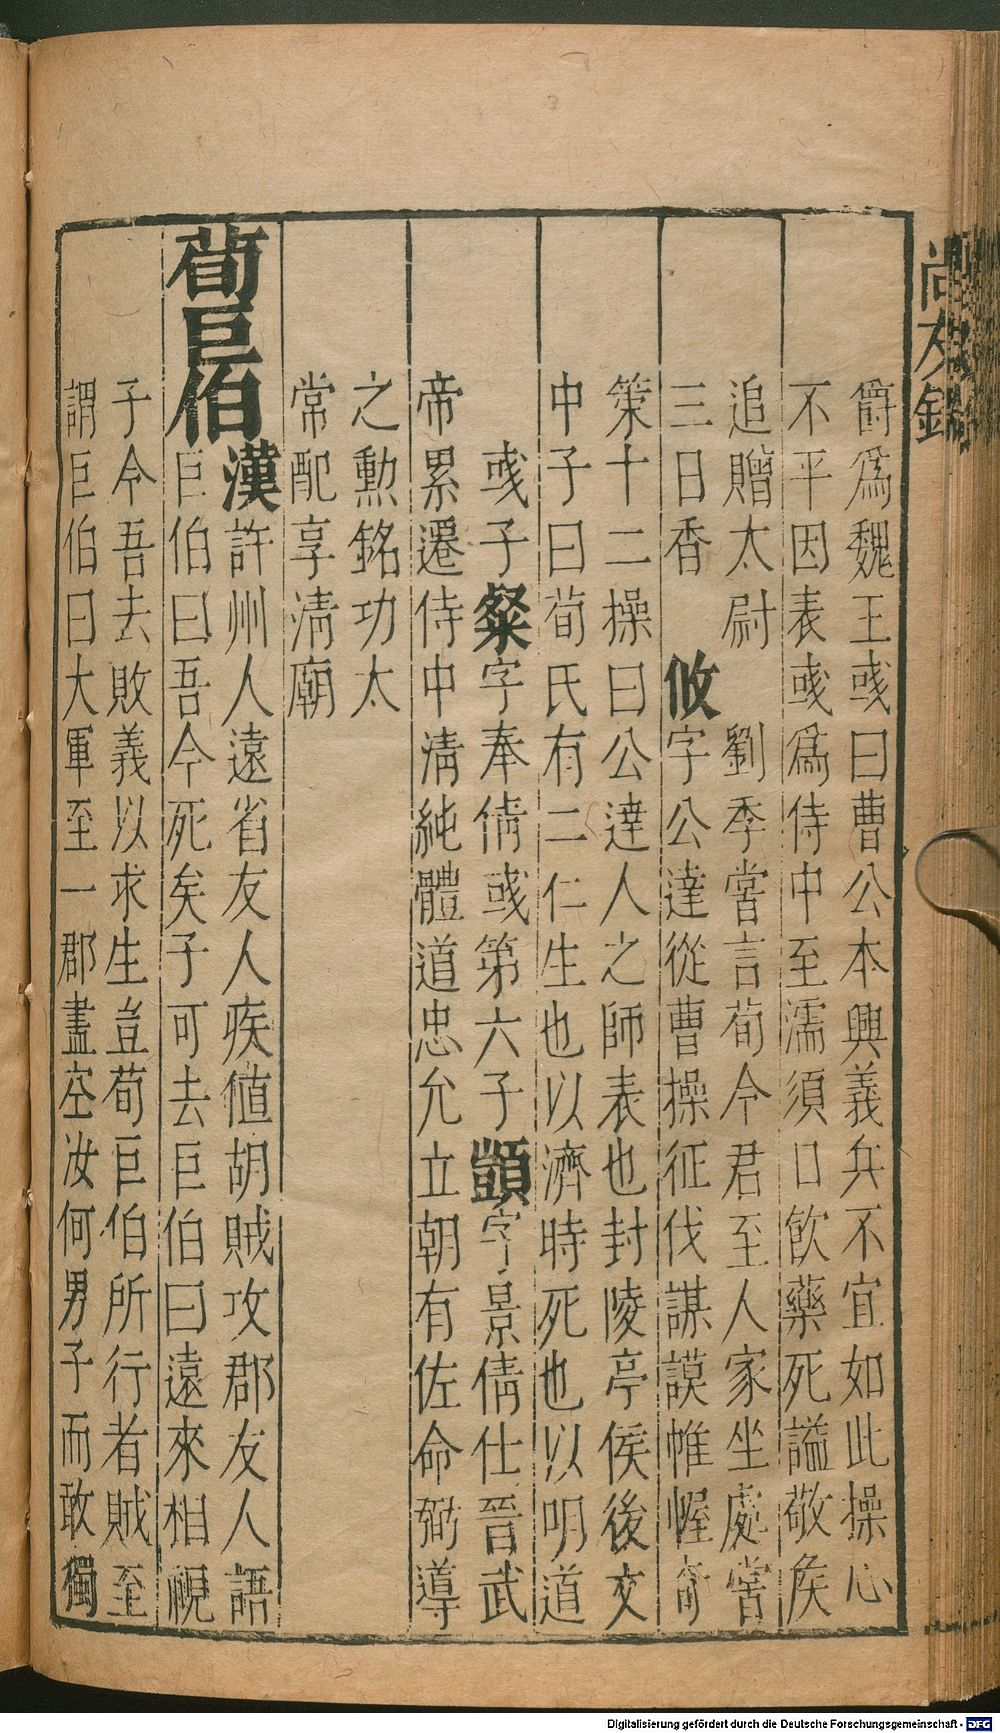 尚友錄
爵爲魏王彧曰曹公本興義兵不宜如此操心
不平因表彧爲侍中至濡須口飲藥死謚敬侯
追贈太尉　劉季嘗言荀令君至人家坐處嘗
三日香　攸字公達從曹操征伐謀謨帷幄奇
策十二操曰公達人之師表也封陵亭侯後文
中子曰荀氏有二仁生也以濟時死也以明道
彧子粲字奉倩彧第六子顗字景倩仕晉武
帝累遷侍中清純體道忠允立朝有佐命弼導
之勳銘功太
常配享清廟
荀巨伯漢許州人遠省友人疾値胡賊攻郡友人語
巨伯曰吾今死矣子可去巨伯曰遠來相視
子令吾去敗義以求生豈荀巨伯所行者賊至
謂巨伯曰大軍至一郡盡空汝何男子而敢獨
Digitalisierung gefördert durch die Deutsche Forschungsgemeinschaft - DFG